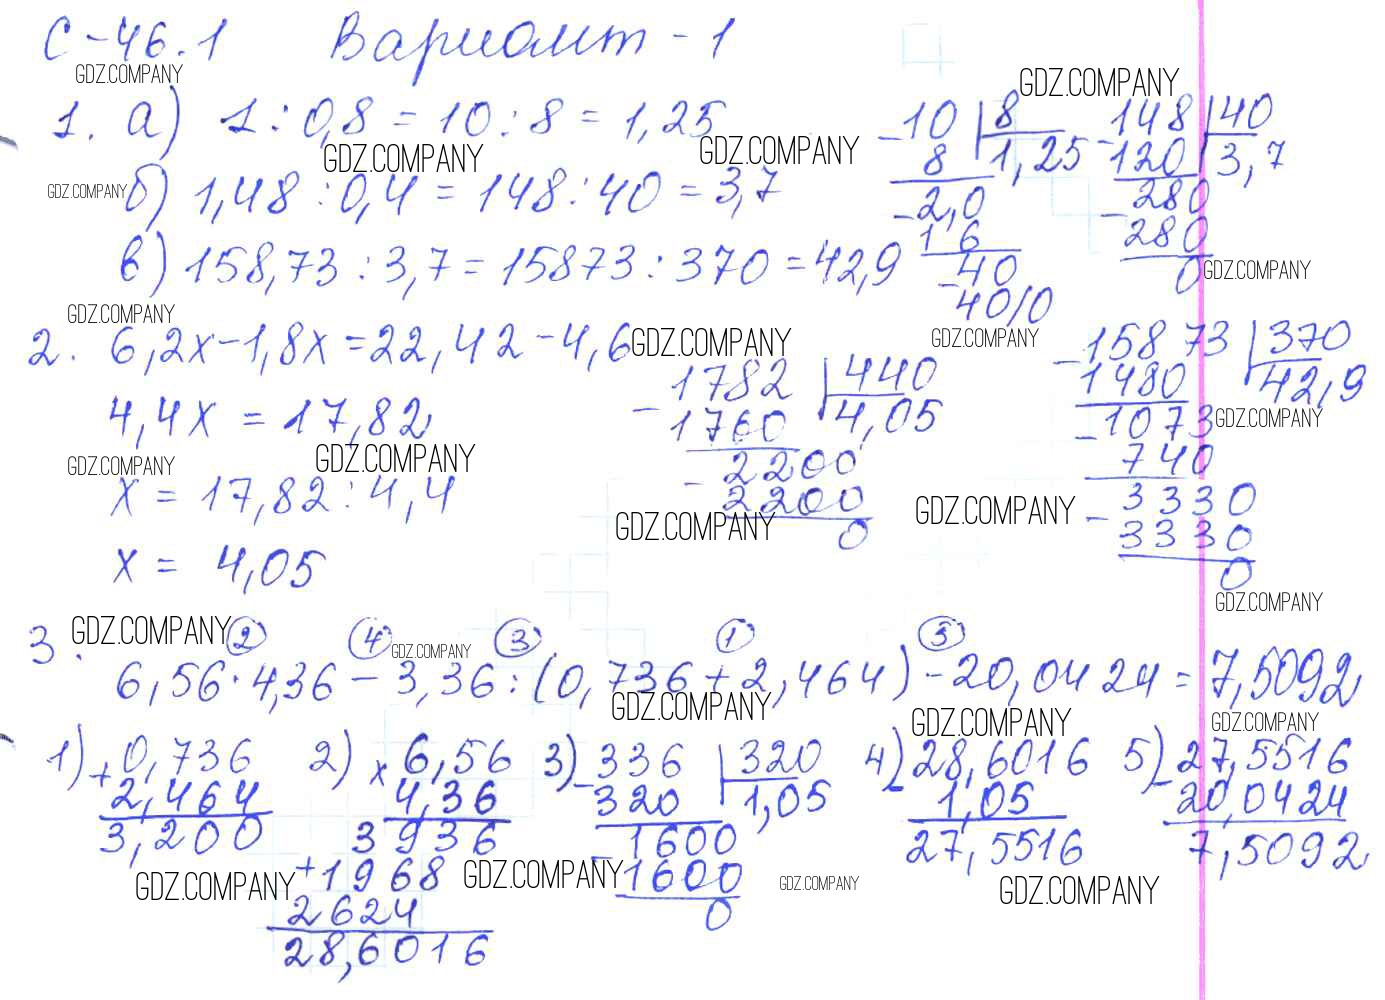 С-46.1 Вариант-1
GDZ.COMPANY
GDZ.COMPANY
1. а) 1:0,8 = 10:8 = 1,25
GDZ.COMPANY GDZ.COMPANY
GDZ.COMPANY б) 1,48:0,4 = 148:40 = 3,7
в) 158,73:3,7 = 15873:370 = 42,9
-10 | 8
8 | 1,25
-2,0
1 6
-40
40/0
-148 | 40
120 | 3,7
-280
280
0
GDZ.COMPANY
GDZ.COMPANY
2. 6,2x-1,8x=22,42-4,6
GDZ.COMPANY GDZ.COMPANY
4,4x = 17,82
GDZ.COMPANY GDZ.COMPANY
x = 17,82:4,4
x = 4,05
-1782 | 440
1760 | 4,05
-2200
2200
0
GDZ.COMPANY
-15873 | 370
1480 | 42,9
-1073
GDZ.COMPANY
740
-3330
3330
0
GDZ.COMPANY
GDZ.COMPANY
3. GDZ.COMPANY 2 4 3 1 5
GDZ.COMPANY
6,56·4,36-3,36:(0,736+2,464)-20,0424=7,5092
GDZ.COMPANY GDZ.COMPANY GDZ.COMPANY
1) +0,736
2,464
3,200
2) x 6,56
4,36
3936
+1968
2624
28,6016
3) -336 | 320
320 | 1,05
-1600
1600
0
4) -28,6016
1,05
27,5516
5) -27,5516
20,0424
7,5092
GDZ.COMPANY GDZ.COMPANY GDZ.COMPANY GDZ.COMPANY